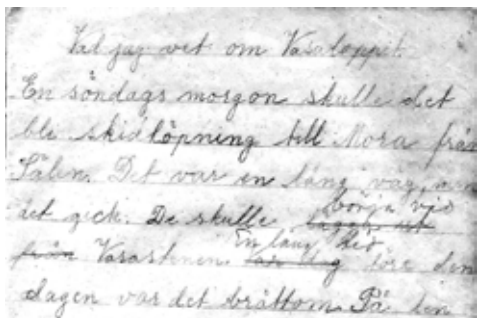 Vad jag vet om Vasaloppet.
En söndags morgon skulle det
bli skidlöpning till Mora från
Sälen. Det var en lång väg, men
det gick. De skulle börja vid
från Vasastenen En lång tid före den
dagen var det bråttom På den